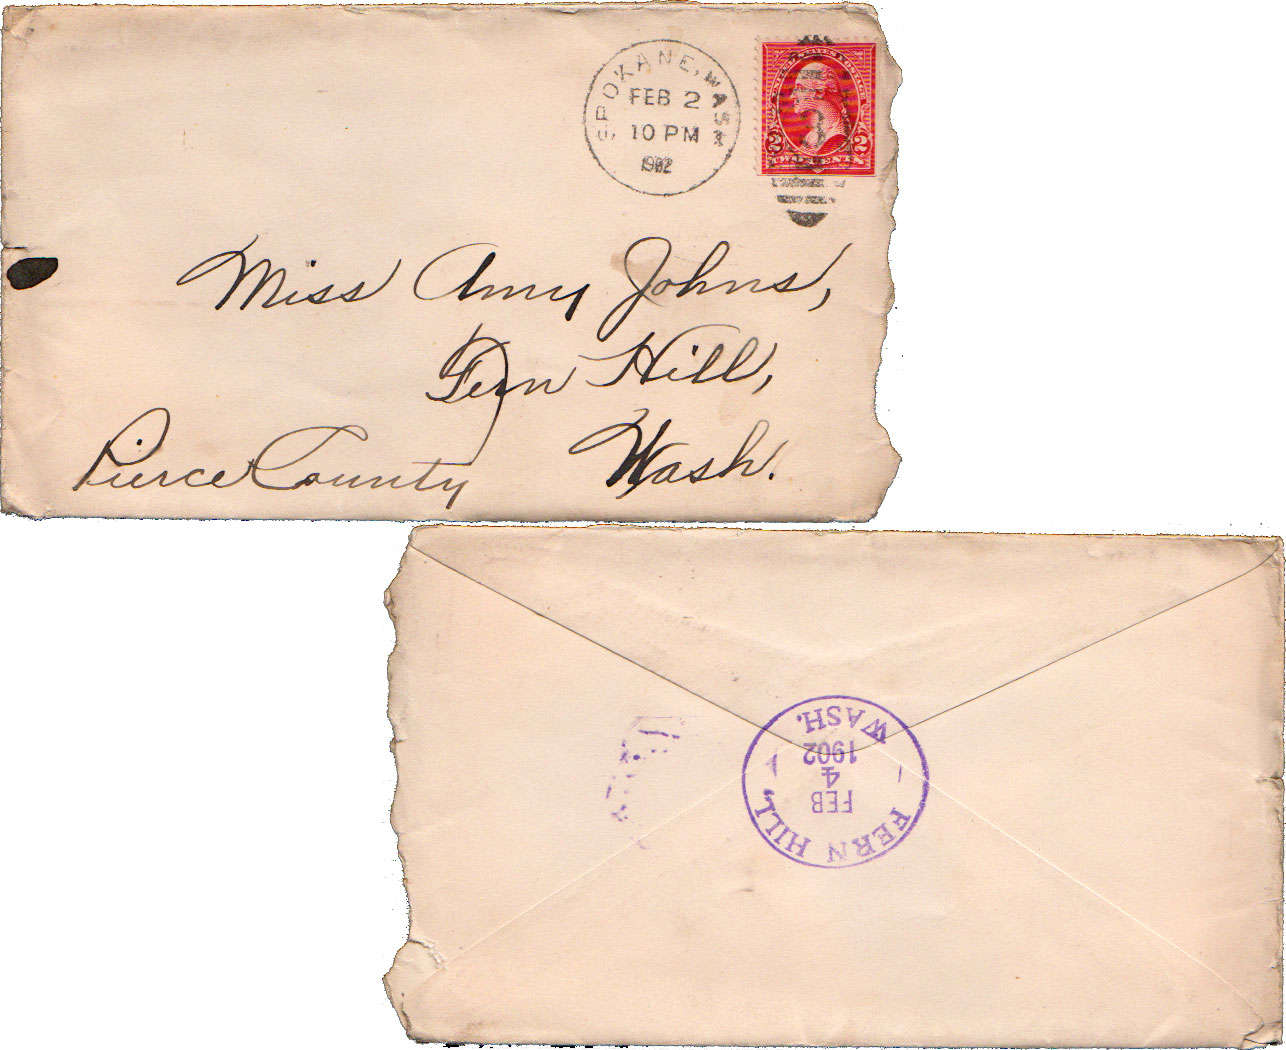 SPOKANE, WASH
FEB 2
10 PM
1902
UNITED STATES POSTAGE
3
2 2
TWO CENTS
Miss Amy Johns,
Fern Hill,
Pierce County Wash.
FERN HILL, WASH.
FEB
4
1902